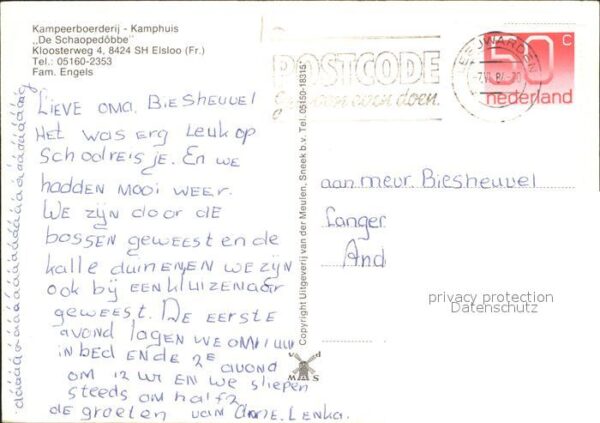 Kampeerboerderij - Kamphuis
„De Schaopedôbbe"
Kloosterweg 4, 8424 SH Elsloo (Fr.)
Tel.: 05160-2353
Fam. Engels
LIEVE OMA. BIESHEUVEL
HET WAS ERG LEUK OP
SCHOOLREISJE. EN WE
HADDEN MOOI WEER.
WE ZIJN DOOR DE
BOSSEN GEWEEST EN DE
KALLE DUINENEN WE ZIJN
OOK BIJ EEN KLUIZENAER
GEWEEST. DE EERSTE
AVOND LAGEN WE OM 1 UUR
IN BED EN DE 2E AVOND
OM 12 UR EN WE SLIEPEN
STEEDS OM HALF 2
DE GROETEN VAN ANNE. LENKA.
Copyright Uitgeverij van der Meulen, Sneek b.v. Tel. 05150-18315
POSTCODE
even doen.
LEEUWARDEN
50 c
nederland
aan mevr. Biesheuvel
Langer
And
privacy protection
Datenschutz